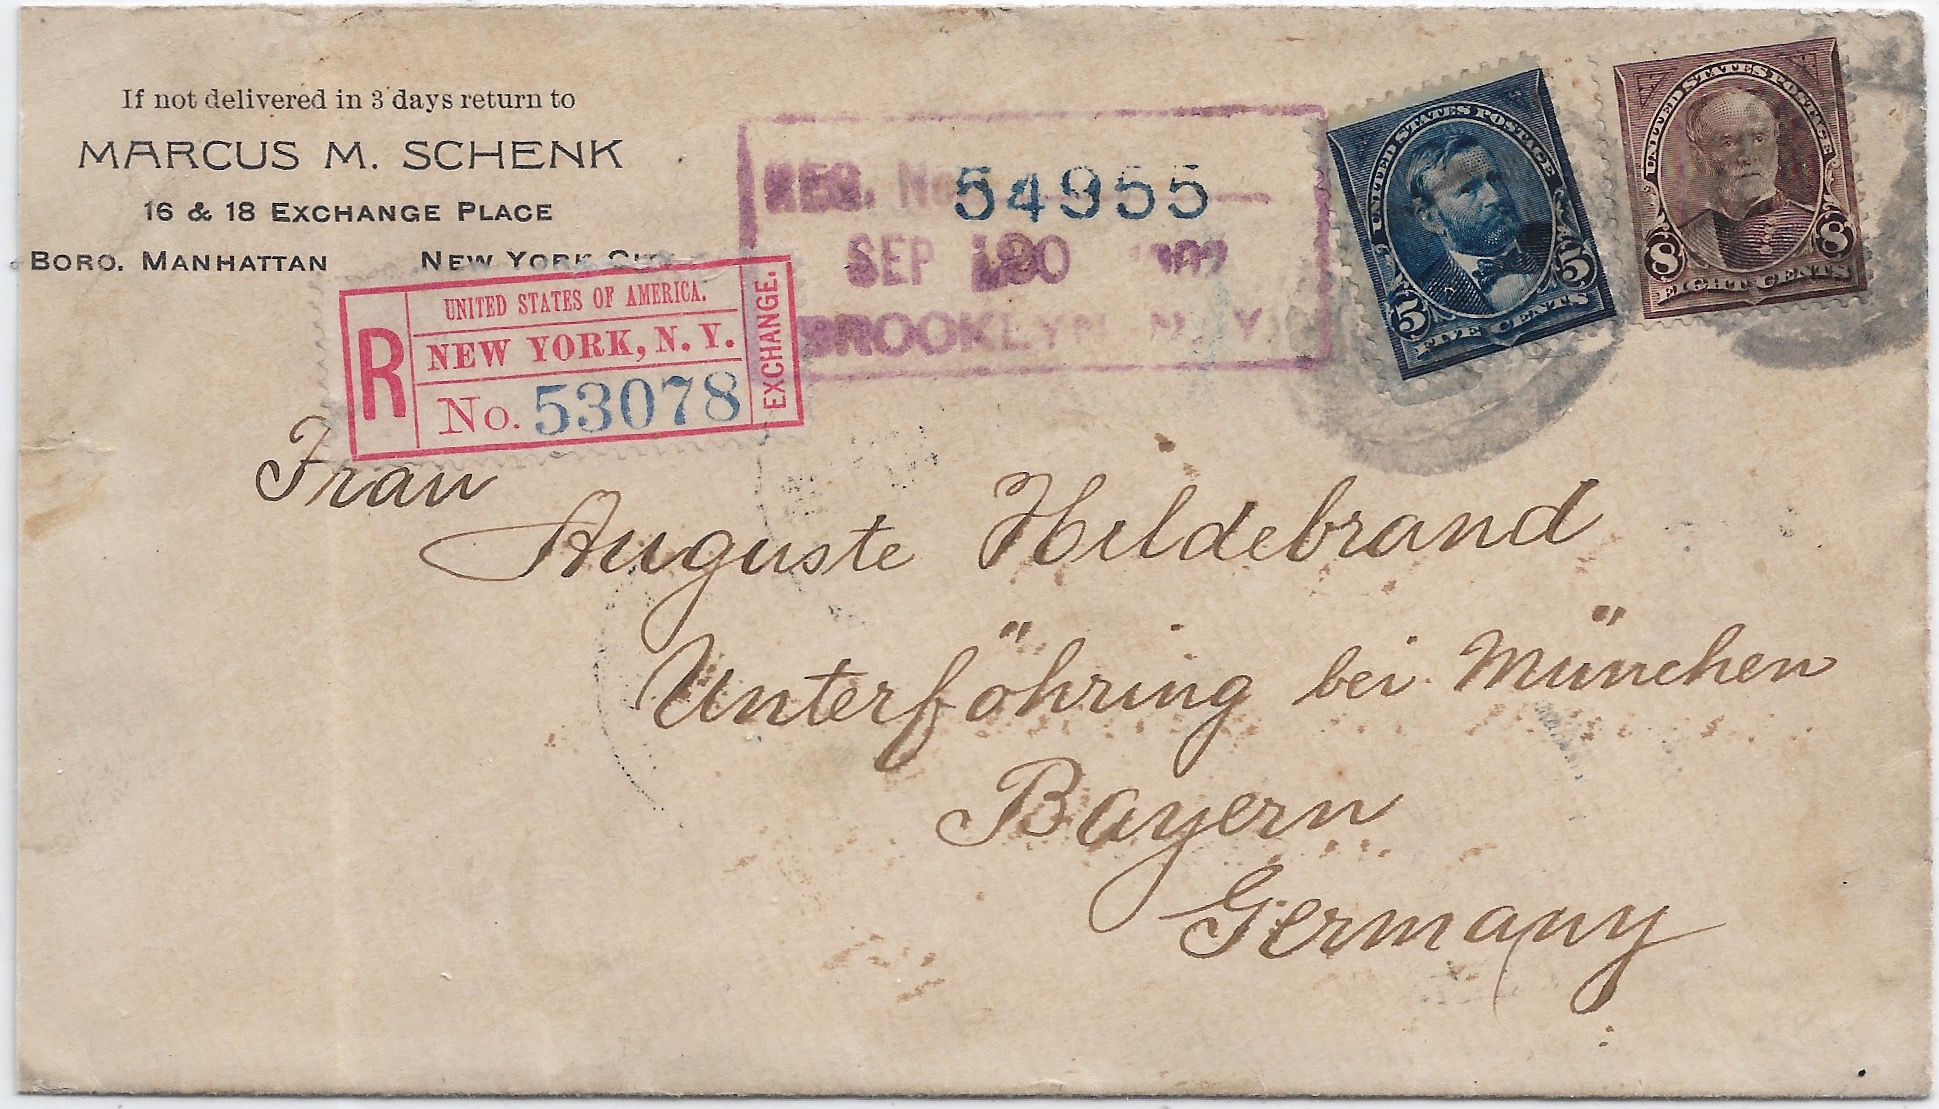 If not delivered in 3 days return to
MARCUS M. SCHENK
16 & 18 EXCHANGE PLACE
BORO. MANHATTAN NEW YORK
REG. No 54955
SEP 1902
BROOKLYN N.Y.
UNITED STATES POSTAGE
5 5
FIVE CENTS
UNITED STATES POSTAGE
8 8
EIGHT CENTS
R
UNITED STATES OF AMERICA.
NEW YORK, N. Y.
No. 53078
EXCHANGE.
Frau
Auguste Hildebrand
Unterföhring bei München
Bayern
Germany